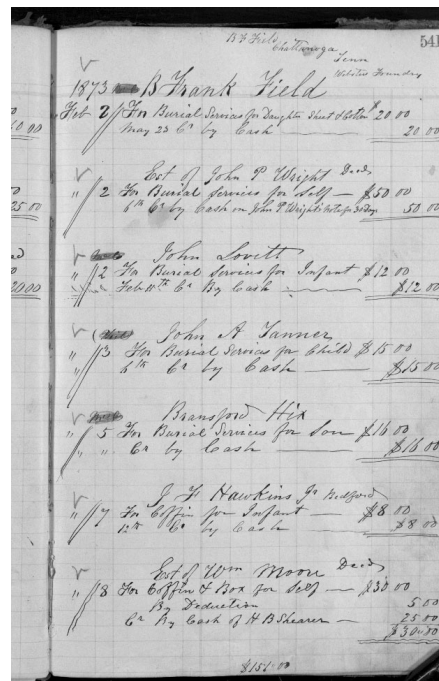 B F Field
Chattanooga
Tenn
Webster Foundry
541
1873 B Frank Field
Feb 2 For Burial Services for Daughter Sheet & Cotton $20.00
May 23 Cr by Cash 20.00
Est of John P Wright Decd
" 2 For Burial Services for Self — $50.00
6th Cr by Cash on John P Wright's Note for 30 Days 50.00
John Lovitt
" 2 For Burial Services for Infant $12.00
Feb 11th Cr By Cash $12.00
John A Tanner
" 3 For Burial Services for Child $15.00
6th Cr by Cash $15.00
Bransford Hix
" 5 For Burial Services for Son $16.00
" " Cr by Cash $16.00
J F Hawkins Jr Bedford
" 7 For Coffin for Infant $8.00
12th Cr by Cash $8.00
Est of Wm Moore Decd
" 8 For Coffin & Box for Self — $30.00
By Deduction 5.00
Cr By Cash of H B Shearer — 25.00
$30.00
$151.00